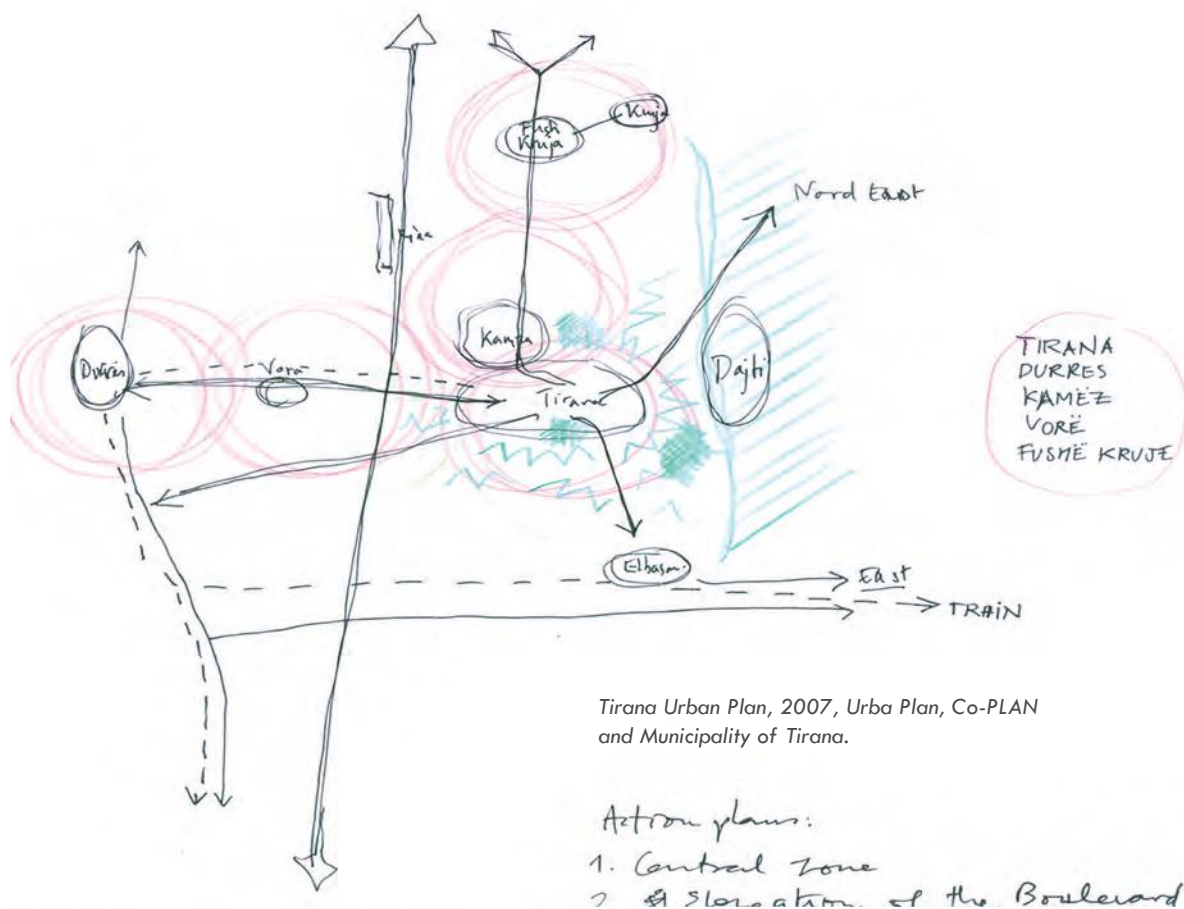 Kruja
Fush
Kruja
Nord East
Kamza
Durrës
Vora
Tirana
Dajti
TIRANA
DURRES
KAMËZ
VORË
FUSHË KRUJE
Elbasan
East
TRAIN
Tirana Urban Plan, 2007, Urba Plan, Co-PLAN
and Municipality of Tirana.
Action plans:
1. Central zone
2. of the Boulevard